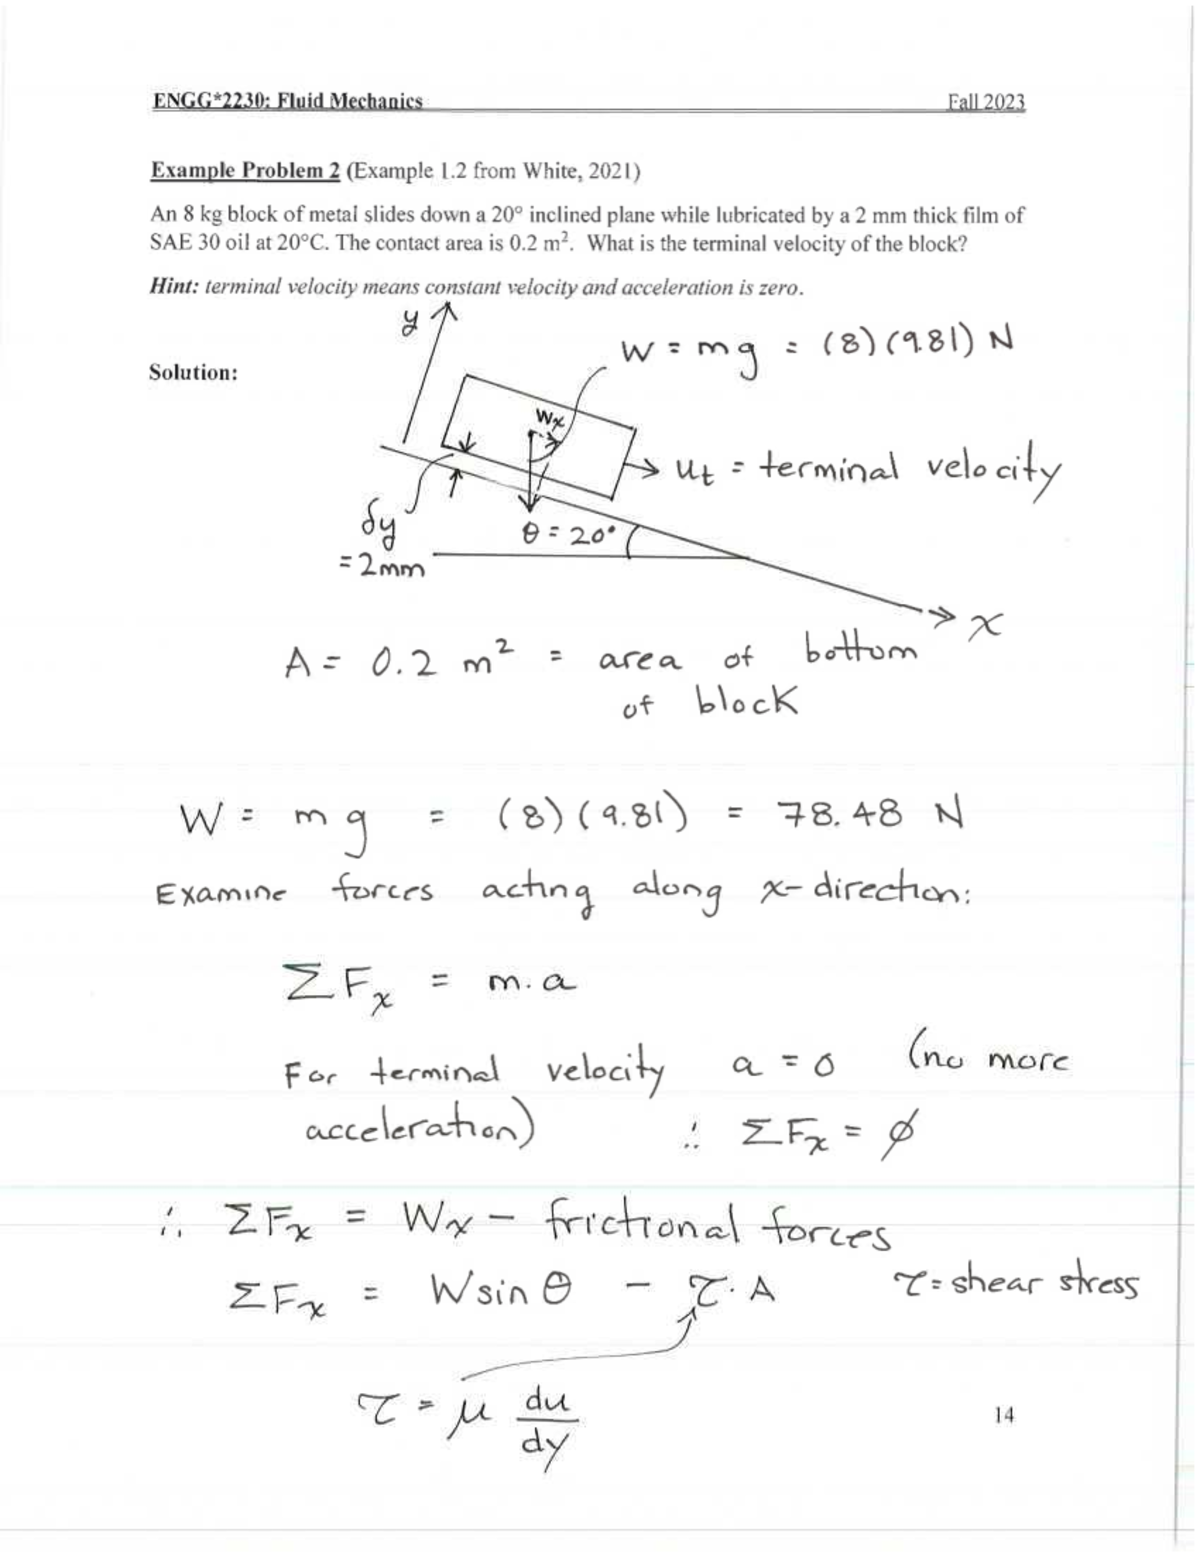 ENGG*2230: Fluid Mechanics Fall 2023
Example Problem 2 (Example 1.2 from White, 2021)
An 8 kg block of metal slides down a 20° inclined plane while lubricated by a 2 mm thick film of
SAE 30 oil at 20°C. The contact area is 0.2 m². What is the terminal velocity of the block?
Hint: terminal velocity means constant velocity and acceleration is zero.
y
W = mg = (8)(9.81) N
Solution:
Wx
ut = terminal velocity
δy
= 2mm
θ = 20°
x
A = 0.2 m² = area of bottom
of block
W = mg = (8)(9.81) = 78.48 N
Examine forces acting along x-direction:
ΣFx = m.a
For terminal velocity a = 0 (no more
acceleration) ∴ ΣFx = ϕ
∴ ΣFx = Wx - frictional forces
ΣFx = W sin θ - τ. A τ = shear stress
τ = μ du/dy
14